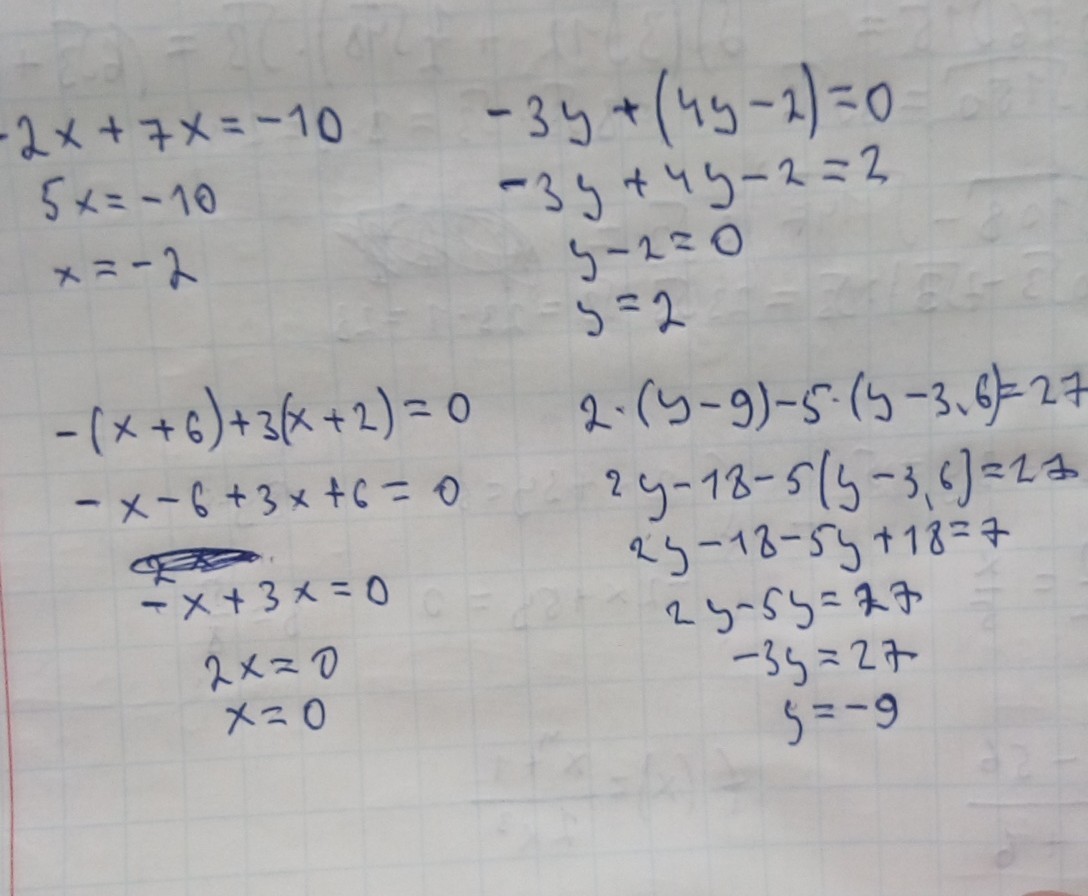 -2x + 7x = -10
5x = -10
x = -2
-3y + (4y - 2) = 0
-3y + 4y - 2 = 2
y - 2 = 0
y = 2
-(x + 6) + 3(x + 2) = 0
-x - 6 + 3x + 6 = 0
-x + 3x = 0
2x = 0
x = 0
2·(y - 9) - 5·(y - 3,6) = 27
2y - 18 - 5(y - 3,6) = 27
2y - 18 - 5y + 18 = 7
2y - 5y = 27
-3y = 27
y = -9